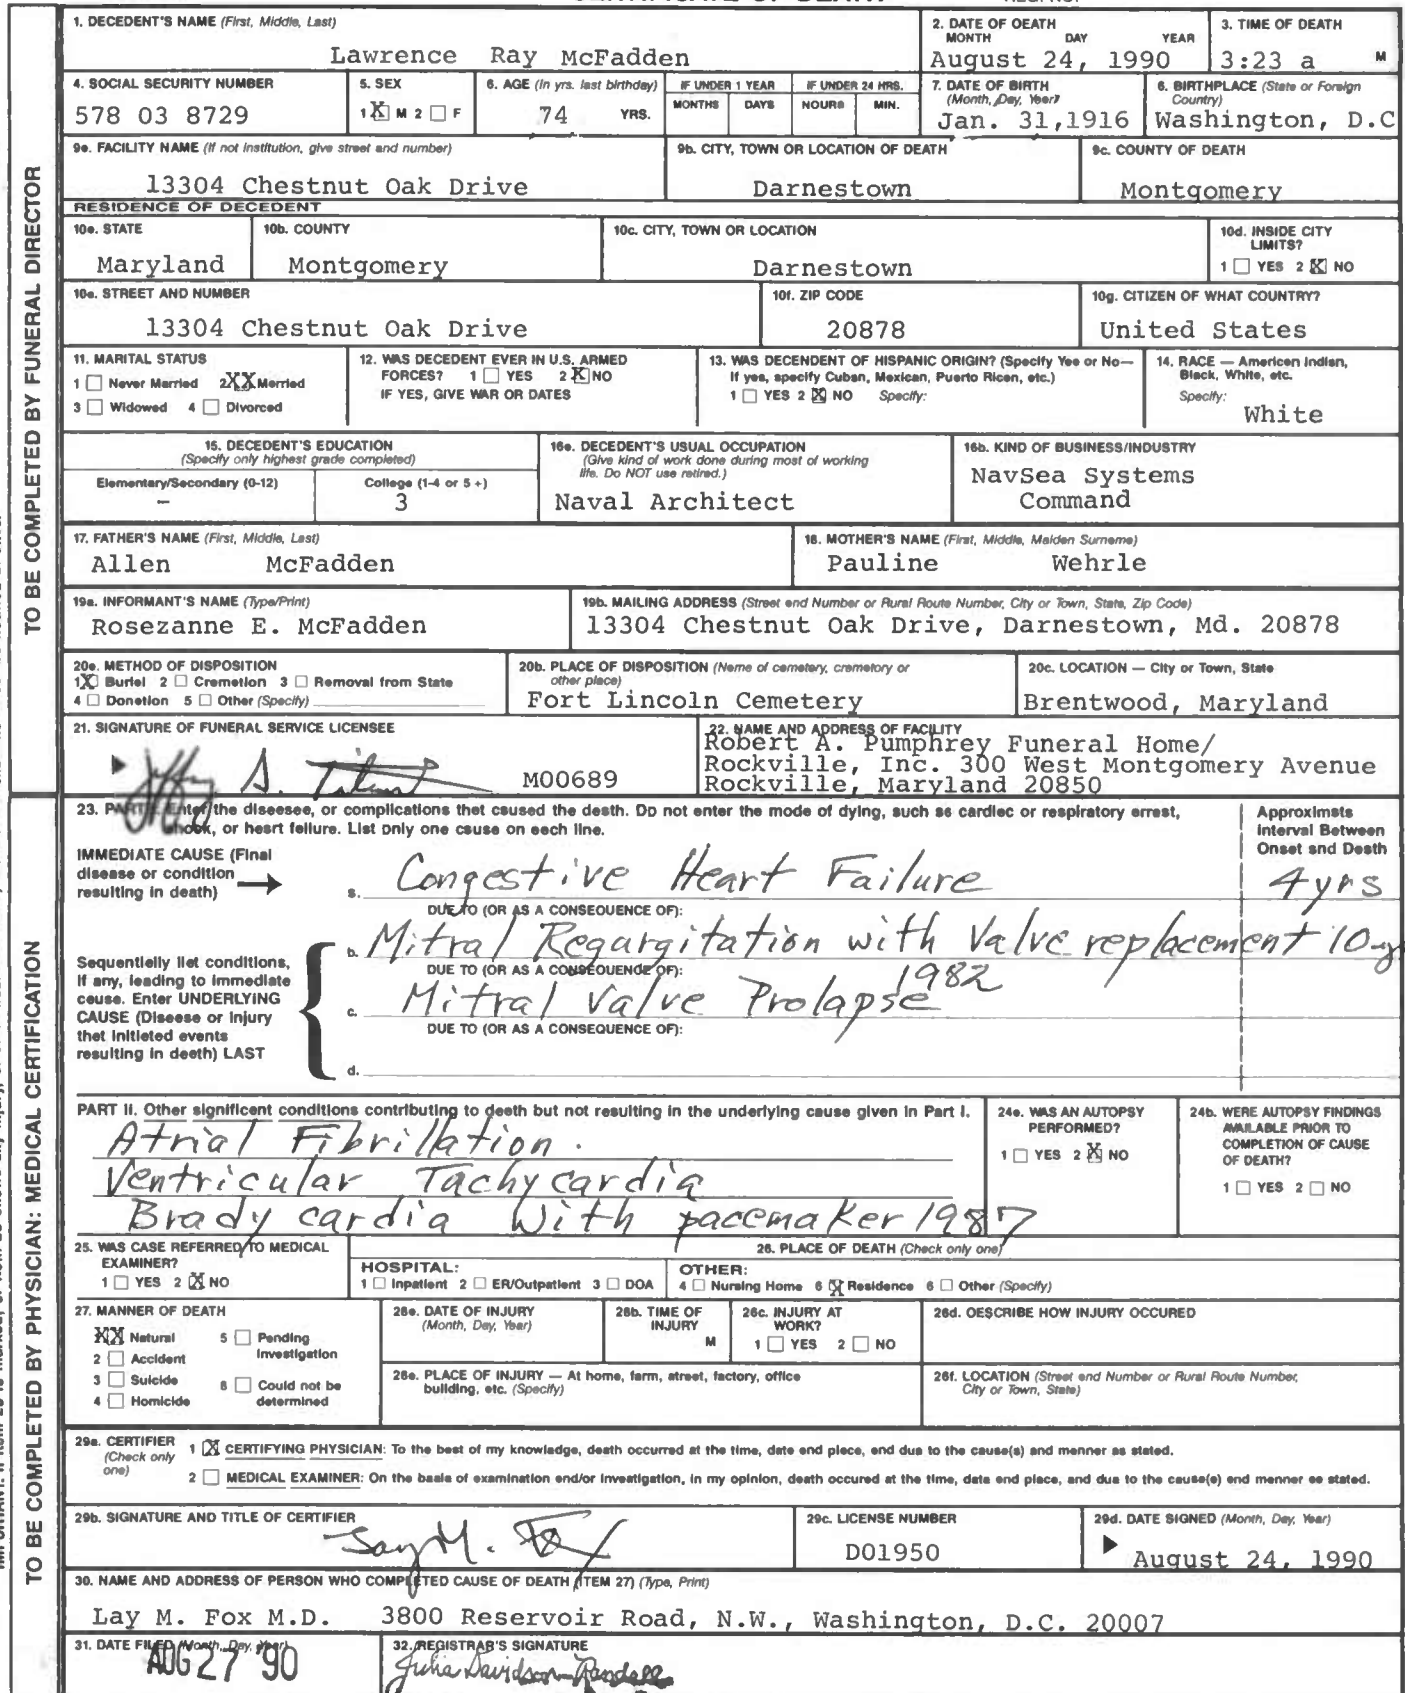 1. DECEDENT'S NAME (First, Middle, Last)
Lawrence Ray McFadden
2. DATE OF DEATH
MONTH DAY YEAR
August 24, 1990
3. TIME OF DEATH
3:23 a M
4. SOCIAL SECURITY NUMBER
578 03 8729
5. SEX
1 X M 2 F
6. AGE (In yrs. last birthday)
74 YRS.
IF UNDER 1 YEAR
MONTHS DAYS
IF UNDER 24 HRS.
HOURS MIN.
7. DATE OF BIRTH
(Month, Day, Year)
Jan. 31,1916
8. BIRTHPLACE (State or Foreign
Country)
Washington, D.C
9a. FACILITY NAME (If not institution, give street and number)
13304 Chestnut Oak Drive
9b. CITY, TOWN OR LOCATION OF DEATH
Darnestown
9c. COUNTY OF DEATH
Montgomery
RESIDENCE OF DECEDENT
10a. STATE
Maryland
10b. COUNTY
Montgomery
10c. CITY, TOWN OR LOCATION
Darnestown
10d. INSIDE CITY
LIMITS?
1 YES 2 X NO
10e. STREET AND NUMBER
13304 Chestnut Oak Drive
10f. ZIP CODE
20878
10g. CITIZEN OF WHAT COUNTRY?
United States
11. MARITAL STATUS
1 Never Married 2XX Married
3 Widowed 4 Divorced
12. WAS DECEDENT EVER IN U.S. ARMED
FORCES? 1 YES 2 X NO
IF YES, GIVE WAR OR DATES
13. WAS DECENDENT OF HISPANIC ORIGIN? (Specify Yes or No—
If yes, specify Cuban, Mexican, Puerto Rican, etc.)
1 YES 2 X NO Specify:
14. RACE — American Indian,
Black, White, etc.
Specify:
White
15. DECEDENT'S EDUCATION
(Specify only highest grade completed)
Elementary/Secondary (0-12)
–
College (1-4 or 5 +)
3
16a. DECEDENT'S USUAL OCCUPATION
(Give kind of work done during most of working
life. Do NOT use retired.)
Naval Architect
16b. KIND OF BUSINESS/INDUSTRY
NavSea Systems
Command
17. FATHER'S NAME (First, Middle, Last)
Allen McFadden
18. MOTHER'S NAME (First, Middle, Maiden Surname)
Pauline Wehrle
19a. INFORMANT'S NAME (Type/Print)
Rosezanne E. McFadden
19b. MAILING ADDRESS (Street and Number or Rural Route Number, City or Town, State, Zip Code)
13304 Chestnut Oak Drive, Darnestown, Md. 20878
20a. METHOD OF DISPOSITION
1 X Burial 2 Cremation 3 Removal from State
4 Donation 5 Other (Specify)
20b. PLACE OF DISPOSITION (Name of cemetery, crematory or
other place)
Fort Lincoln Cemetery
20c. LOCATION — City or Town, State
Brentwood, Maryland
21. SIGNATURE OF FUNERAL SERVICE LICENSEE
M00689
22. NAME AND ADDRESS OF FACILITY
Robert A. Pumphrey Funeral Home/
Rockville, Inc. 300 West Montgomery Avenue
Rockville, Maryland 20850
23. PART I. Enter the diseases, or complications that caused the death. Do not enter the mode of dying, such as cardiac or respiratory arrest,
shock, or heart failure. List only one cause on each line.
Approximate
Interval Between
Onset and Death
IMMEDIATE CAUSE (Final
disease or condition
resulting in death)
a. Congestive Heart Failure 4 yrs
DUE TO (OR AS A CONSEQUENCE OF):
b. Mitral Regurgitation with Valve replacement 10 y
1982
DUE TO (OR AS A CONSEQUENCE OF):
c. Mitral Valve Prolapse
DUE TO (OR AS A CONSEQUENCE OF):
d.
Sequentially list conditions,
if any, leading to immediate
cause. Enter UNDERLYING
CAUSE (Disease or injury
that initiated events
resulting in death) LAST
PART II. Other significant conditions contributing to death but not resulting in the underlying cause given in Part I.
Atrial Fibrillation.
Ventricular Tachycardia
Bradycardia with pacemaker 1987
24a. WAS AN AUTOPSY
PERFORMED?
1 YES 2 X NO
24b. WERE AUTOPSY FINDINGS
AVAILABLE PRIOR TO
COMPLETION OF CAUSE
OF DEATH?
1 YES 2 NO
25. WAS CASE REFERRED TO MEDICAL
EXAMINER?
1 YES 2 X NO
26. PLACE OF DEATH (Check only one)
HOSPITAL:
1 Inpatient 2 ER/Outpatient 3 DOA
OTHER:
4 Nursing Home 5 X Residence 6 Other (Specify)
27. MANNER OF DEATH
XX Natural 5 Pending
Investigation
2 Accident
3 Suicide 6 Could not be
determined
4 Homicide
28a. DATE OF INJURY
(Month, Day, Year)
28b. TIME OF
INJURY
M
28c. INJURY AT
WORK?
1 YES 2 NO
28d. DESCRIBE HOW INJURY OCCURED
28e. PLACE OF INJURY — At home, farm, street, factory, office
building, etc. (Specify)
28f. LOCATION (Street and Number or Rural Route Number,
City or Town, State)
29a. CERTIFIER
(Check only
one)
1 X CERTIFYING PHYSICIAN: To the best of my knowledge, death occurred at the time, date and place, and due to the cause(s) and manner as stated.
2 MEDICAL EXAMINER: On the basis of examination and/or investigation, in my opinion, death occured at the time, date and place, and due to the cause(s) and manner as stated.
29b. SIGNATURE AND TITLE OF CERTIFIER
29c. LICENSE NUMBER
D01950
29d. DATE SIGNED (Month, Day, Year)
August 24, 1990
30. NAME AND ADDRESS OF PERSON WHO COMPLETED CAUSE OF DEATH (ITEM 27) (Type, Print)
Lay M. Fox M.D. 3800 Reservoir Road, N.W., Washington, D.C. 20007
31. DATE FILED (Month, Day, Year)
AUG 27 '90
32. REGISTRAR'S SIGNATURE
Julia Davidson-Randall
TO BE COMPLETED BY FUNERAL DIRECTOR
TO BE COMPLETED BY PHYSICIAN: MEDICAL CERTIFICATION